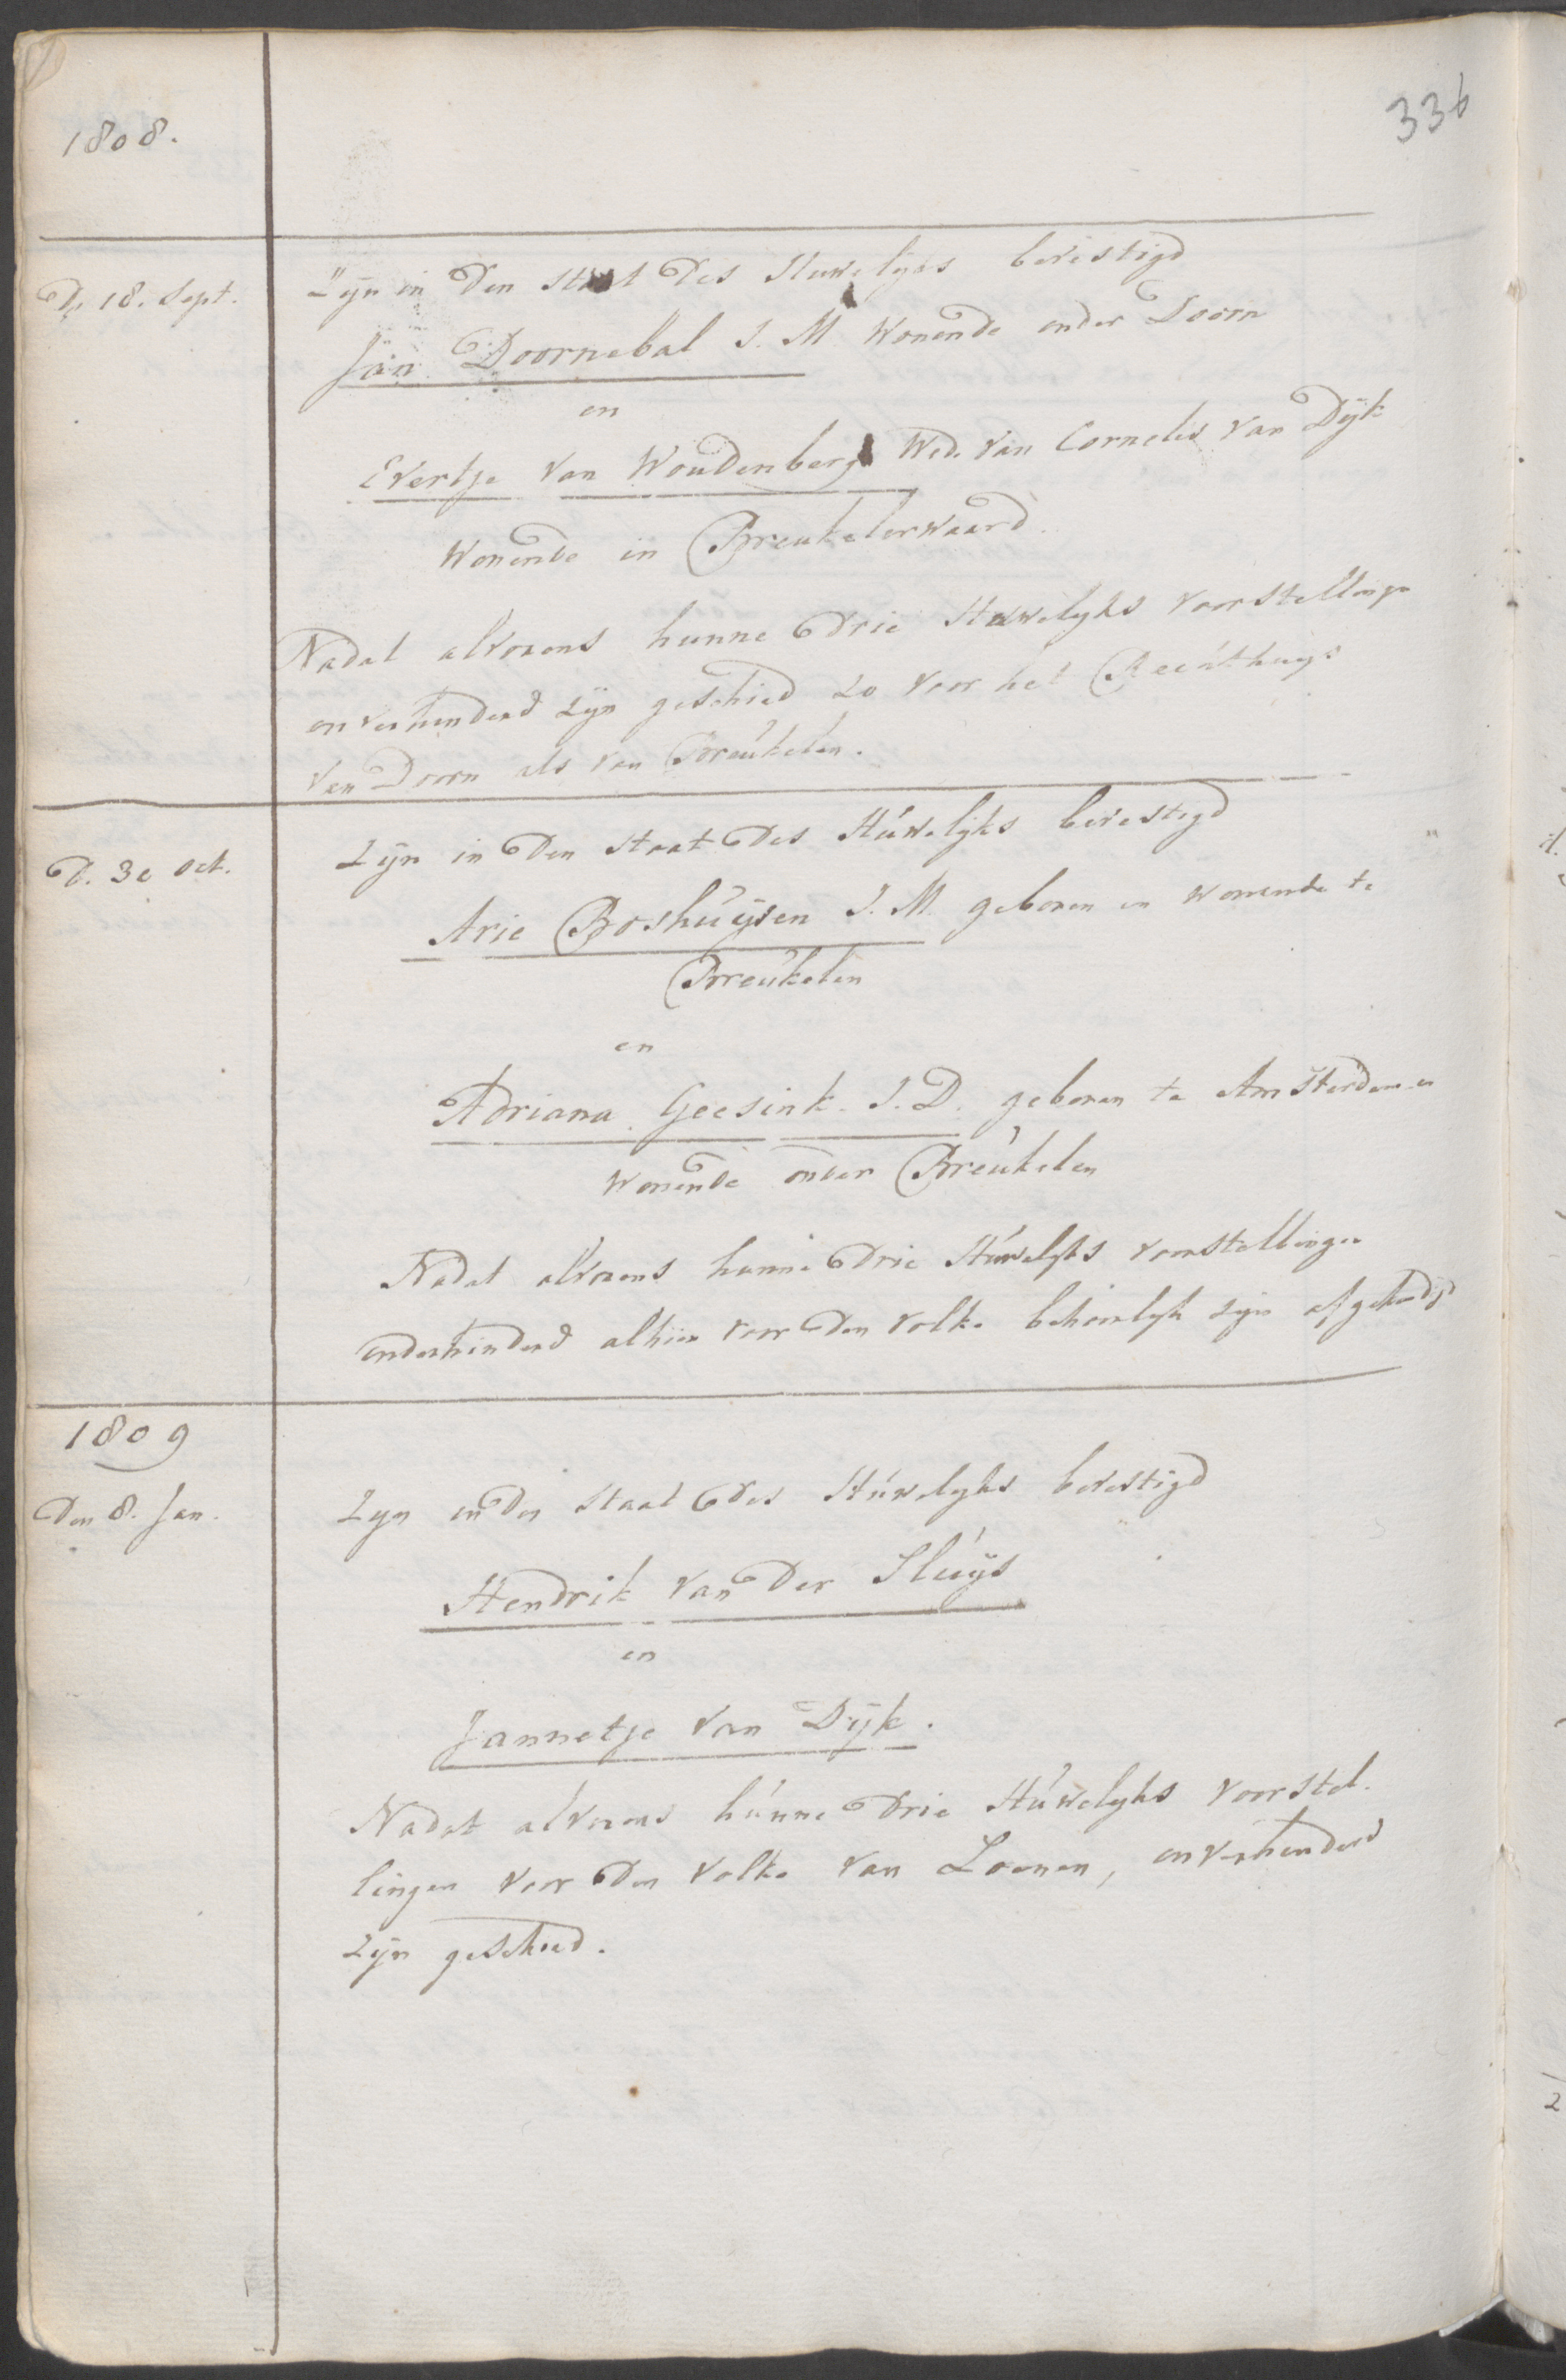 336
1808.
D. 18. Sept.
Zyn in den Staat des Huwelyks bevestigd
Jan Doornebal J. M. Wonende onder Doorn
en
Evertje Van Woudenberg Wed. Van Cornelis Van Dyk
Wonende in Breukelerwaard.
Nadat alvorens hunne drie Huwelyks voorstellinge
onverhinderd zyn geschied zo voor het Rechthuys
Van Doorn als Van Breukelen.
D. 30 Oct.
Zyn in den Staat des Huwelyks bevestigd
Arie Boshuysen J. M. geboren en wonende te
Breukelen
en
Adriana Geesink J. D. geboren te Amsterdam en
Wonende onder Breukelen
Nadat alvorens hunne drie Huwelyks voorstellingen
onverhinderd alhier voor den Volke behoorlyk zyn afgekondigd
1809
Den 8. Jan.
Zyn in den Staat des Huwelyks bevestigd
Hendrik Van der Sluys
en
Jannetje Van Dyk.
Nadat alvorens hunne drie Huwelyks voorstel-
lingen voor den Volke Van Loenen, onverhinderd
zyn geschied.